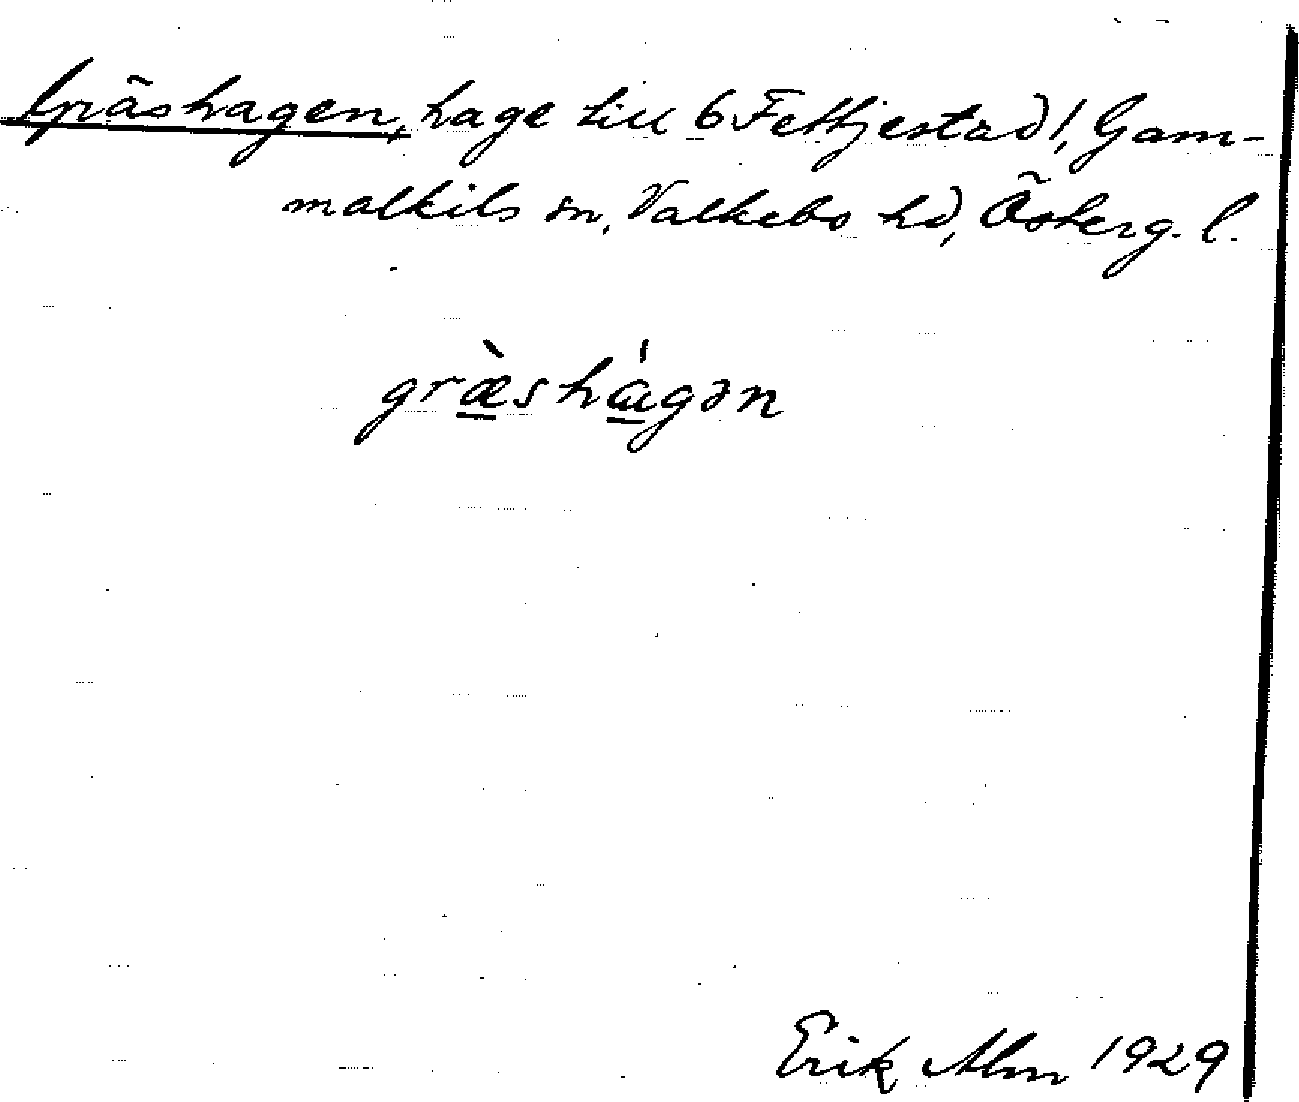 Gräshagen, hage till 6 Fettjestad!, Gam-
malkils sn, Valkebo hd, Österg. l.
græ̀sha̍gən
Erik Alm 1929